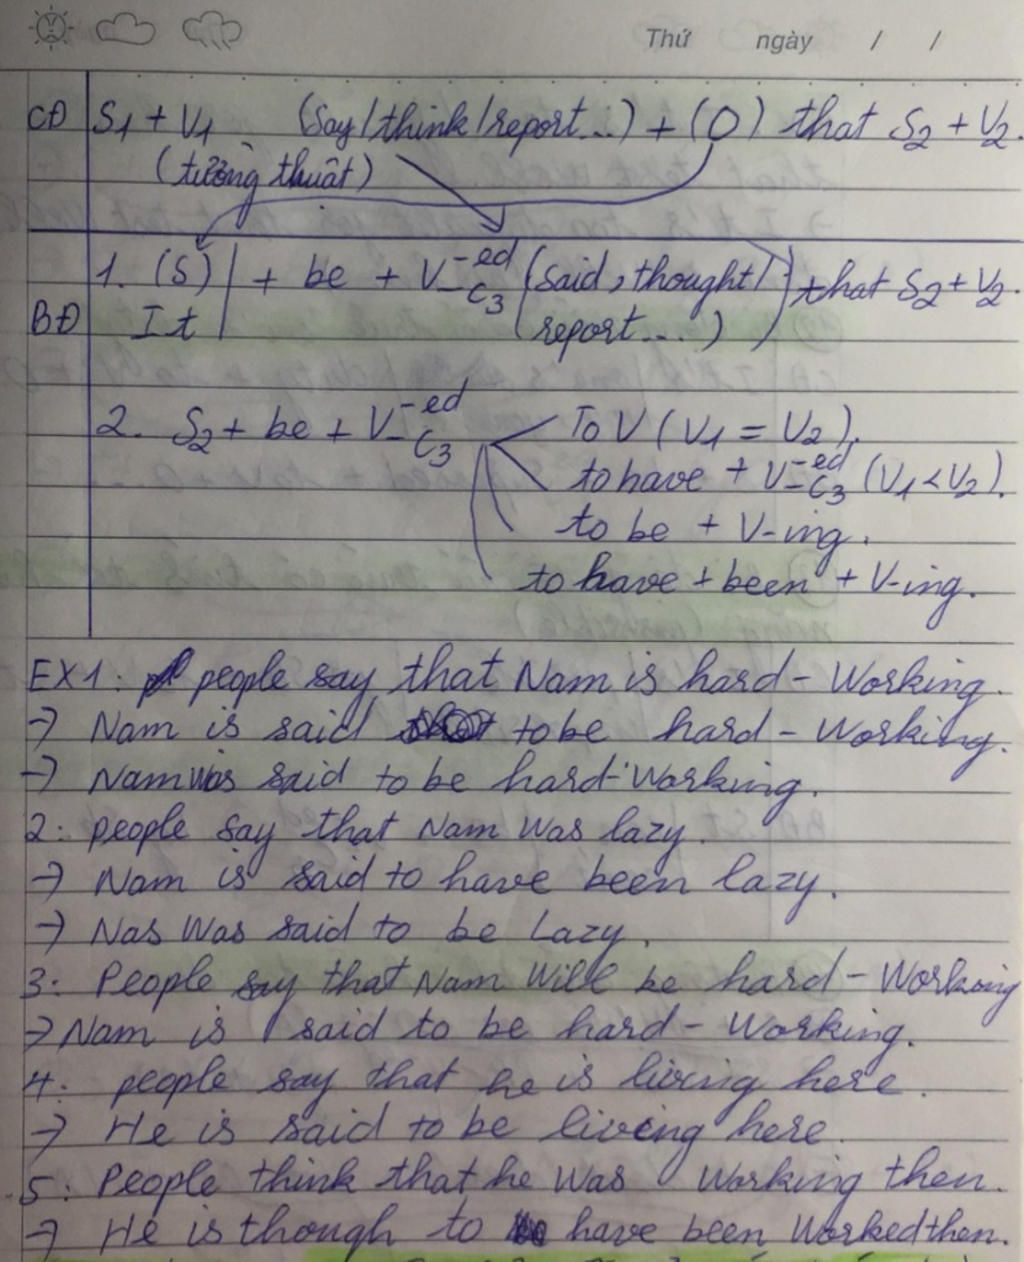 Thứ ngày / /
CĐ S1 + V1 (Say / think / report...) + (O) that S2 + V2.
(tường thuật)
1. (S) + be + V-ed (said, thought /
It C3 report....) that S2 + V2.
BĐ
2. S2 + be + V-ed C3 To V (V1 = V2).
to have + V-ed C3 (V1 < V2).
to be + V-ing.
to have + been + V-ing.
EX1: people say that Nam is hard - Working.
→ Nam is said to be hard - Working.
→ Nam was said to be hard - Working.
2: people say that Nam Was lazy.
→ Nam is said to have been lazy.
→ Nas Was said to be Lazy.
3: People say that Nam Will be hard - Working
→ Nam is said to be hard - Working.
4: people say that he is living here.
→ He is said to be living here.
5: People think that he Was Working then.
→ He is though to have been Worked then.